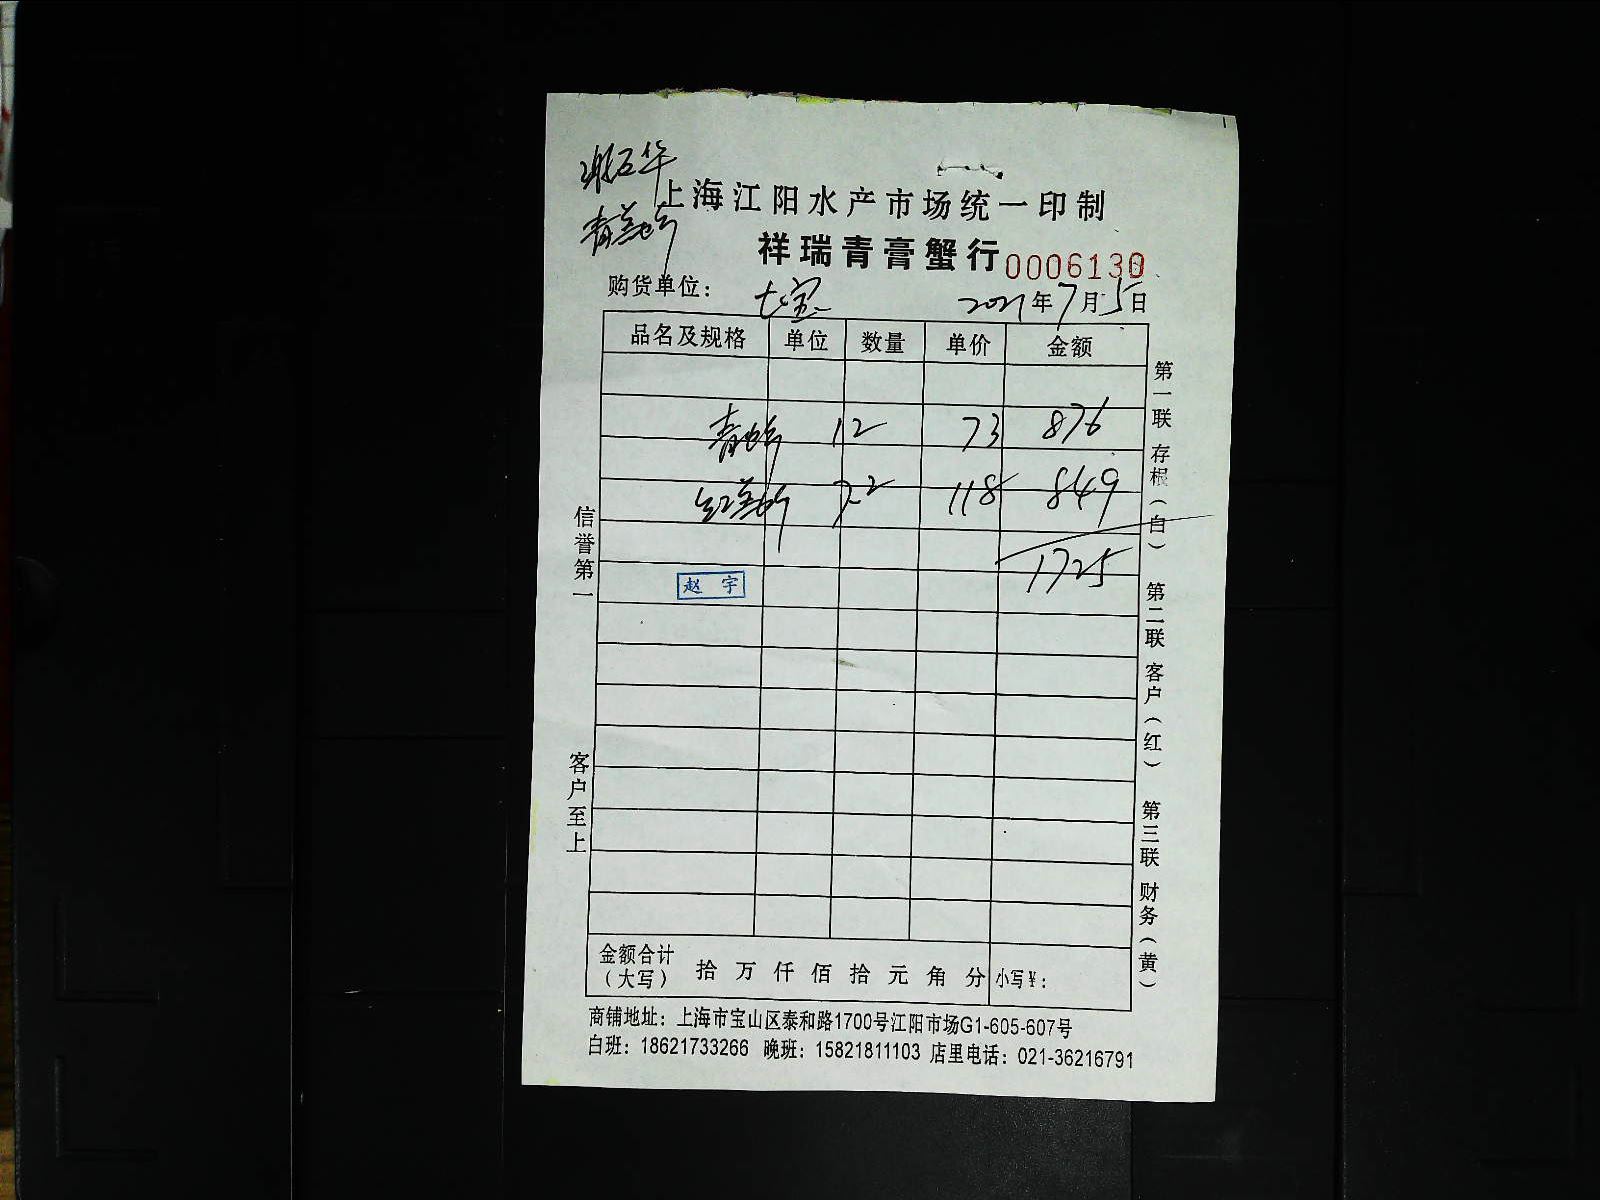 上海江阳水产市场统一印制
祥瑞青膏蟹行 0006130
购货单位： 七宝 2021年7月5日
品名及规格 单位 数量 单价 金额
青 12 73 876
红 7.2 118 849
1725
赵宇
信誉第一
客户至上
第一联 存根（白） 第二联 客户（红） 第三联 财务（黄）
金额合计（大写） 拾 万 仟 佰 拾 元 角 分 小写¥：
商铺地址：上海市宝山区泰和路1700号江阳市场G1-605-607号
白班：18621733266 晚班：15821811103 店里电话：021-36216791